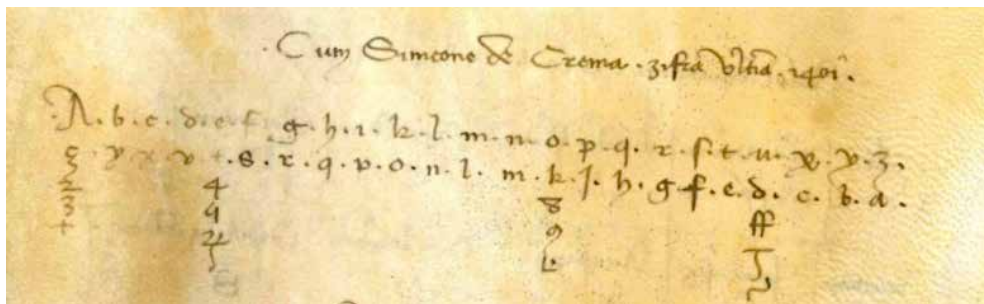 Cum Simeone de Crema. zifra ultia. 1401.
A. b. c. d. e. f. g. h. i. k. l. m. n. o. p. q. r. s. t. u. x. y. z.
z. y x v t. s. r. q. p. o. n. l. m. k. j. h. g. f. e. d. c. b. a.
4 8 ff
9 9